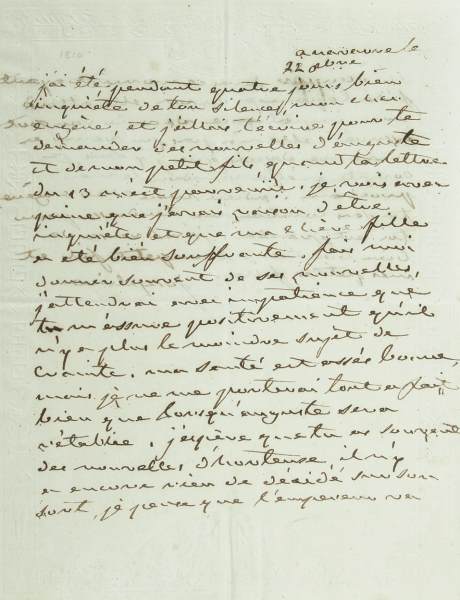 a navarre le
22 8bre
j'ai été pendant quatre jours bien
inquiète de ton silence, mon cher
eugène, et j'allois t'écrire pour te
demander des nouvelles d'auguste
et de mon petit fils, quand ta lettre
du 13 m'est parvenue, je vois avec
peine que j'avais raison d'être
inquiète et que ma chère fille
a été bien souffrante, fais moi
donner souvent de ses nouvelles,
j'attendrai avec impatience que
tu m'assure positivement qu'il
n'y a plus le moindre sujet de
crainte, ma santé est assés bonne,
mais je ne me porterai tout a fait
bien que lorsqu'auguste sera
rétablie, j'espère que tu as souvent
des nouvelles d'hortense, il n'y
a encore rien de décidé sur son
sort, je pense que l'empereur va